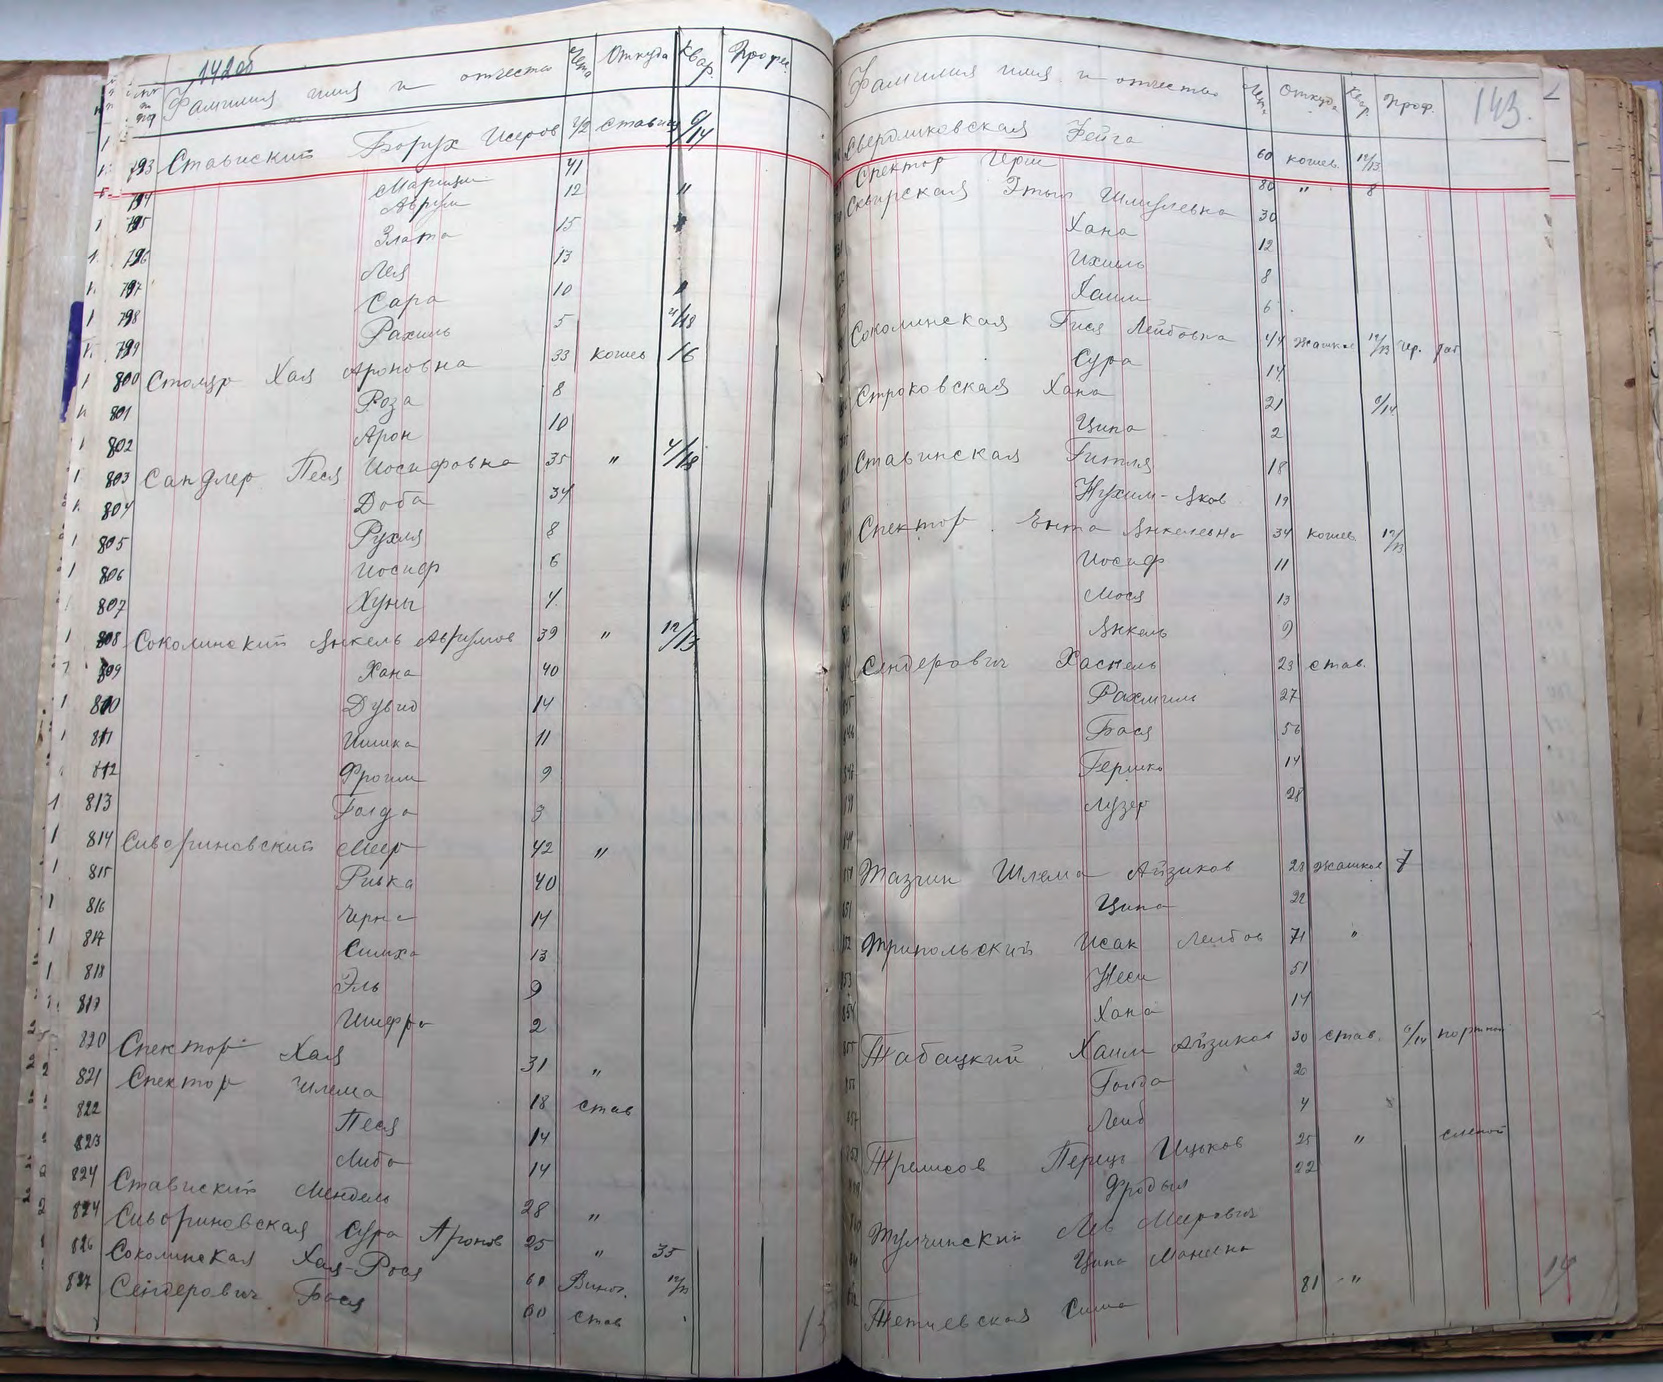 142об
Фамилия имя и отчество Лета Откуда Квар. Профес.
793 Ставиский Борух Исеров 42 ставищ 6/14
794 Мариам 41
795 Аврум 12 "
796 Злата 15
797 Лея 13
798 Сара 10
799 Рахиль 5 4/18
800 Столяр Хая Ароновна 33 кошев 16
801 Роза 8
802 Арон 10
803 Сандлер Песя Иосифовна 35 " 4/18
804 Доба 34
805 Рухля 8
806 Иосиф 6
807 Хуны 4
808 Соколинский Янкель Аврумов 39 " 12/13
809 Хана 40
810 Дувид 14
811 Шика 11
812 Фроим 9
813 Голда 3
814 Сивориновский Меер 42 "
815 Ривка 40
816 Черна 14
817 Симха 13
818 Эль 9
819 Шифра 2
820 Спектор Хая 31 "
821 Спектор Шлема 18 став
822 Песя 14
823 Люба 14
824 Ставиский Мендель 28 "
824 Сивориновская Сура Аронов 25 " 35
826 Соколинская Хая-Рося 61 Виног. 12/13
827 Сендерович Бася 60 став
143.
Фамилия имя и отчество Лета Откуда Квар. Проф.
Свердликовская Фейга 60 кошев. 12/13
Спектор Герш 80 " 8
Сквирская Этыл Шмулевна 30
Хана 12
Ихиль 8
Хаим 6
Соколинская Гися Лейбовна 44 жашков 12/13
Сура 14
Строковская Хана 21 6/14
Ципа 2
Ставинская Гитля 18
Нухим-Яков 19
Спектор Ента Янкелевна 34 кошев 12/13
Иосиф 11
Мося 13
Янкель 9
Сендерович Хаскель 23 став.
Рахмиль 27
Бася 56
Гершко 14
Лузер 28
Тазгин Шлема Айзиков 28 жашков 7
Ципа 22
Трипольский Исак Лейбов 71 "
Неси 51
Хана 14
Табацкий Хаим Айзиков 30 став. 6/14 портной
Голда 20
Лейб 4
Трелисов Перець Ицьков 25 " слепой
Фродыл 22
Тулчинский Лев Меерович
Ципа Манесна
Тетиевская Сима 81 "